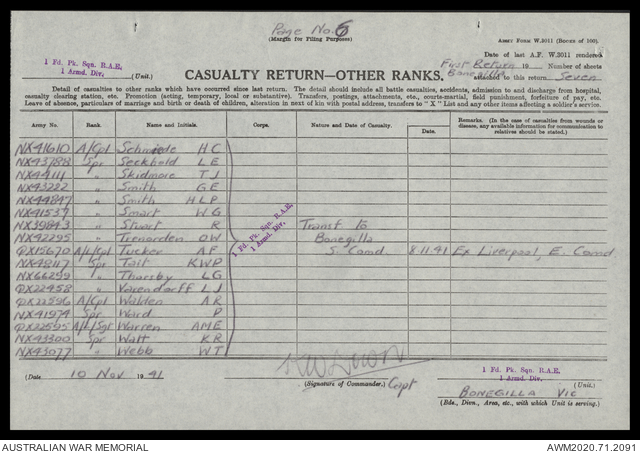 Page No. 6
(Margin for Filing Purposes)
ARMY FORM W.3011 (Books of 100).
1 Fd. Pk. Sqn. R.A.E.
1 Armd. Div. (Unit.)
Date of last A.F. W.3011 rendered
First Return 19 Number of sheets
Bonegilla attached to this return Seven
CASUALTY RETURN—OTHER RANKS.
Detail of casualties to other ranks which have occurred since last return. The detail should include all battle casualties, accidents, admission to and discharge from hospital,
casualty clearing station, etc. Promotion (acting, temporary, local or substantive). Transfers, postings, attachments, etc., courts-martial, field punishment, forfeiture of pay, etc.
Leave of absence, particulars of marriage and birth or death of children, alteration in next of kin with postal address, transfers to "X" List and any other items affecting a soldier's service.
Army No. Rank. Name and Initials. Corps. Nature and Date of Casualty. Date. Remarks. (In the case of casualties from wounds or disease, any available information for communication to relatives should be stated.)
NX41610 A/Cpl Schmiede H C
NX43788 Spr Seckhold L E
NX44111 " Skidmore T J
NX43222 " Smith G E
NX44847 " Smith H L P
NX41537 " Smart W G
NX39843 " Stuart R Transf to
NX42295 " Trenorden O W Bonegilla
QX15670 A/L/Cpl Tucker A F 1 Fd. Pk. Sqn. R.A.E. 1 Armd. Div. S. Comd 8.11.41 Ex Liverpool, E. Comd
NX48117 Spr Tait K W P
NX66299 " Thorsby L G
QX22458 " Varendorff L J
QX22596 A/Cpl Walden A R
NX41974 Spr Ward P
QX22595 A/L/Sgt Warren A M E
NX43300 Spr Watt K R
NX43077 " Webb W T
(Date 10 Nov 1941
(Signature of Commander.) Capt
1 Fd. Pk. Sqn. R.A.E.
1 Armd. Div. (Unit.)
BONEGILLA VIC
(Bde., Divn., Area, etc., with which Unit is serving.)
AUSTRALIAN WAR MEMORIAL AWM2020.71.2091